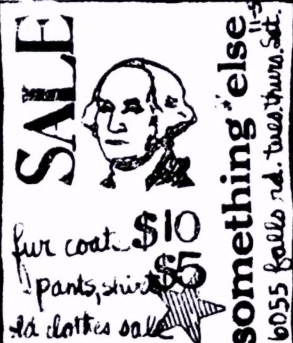 SALE
fur coats $10
pants, shirts $5
old clothes sale
something else
6055 falls rd. tues. thurs. Sat. 11-5